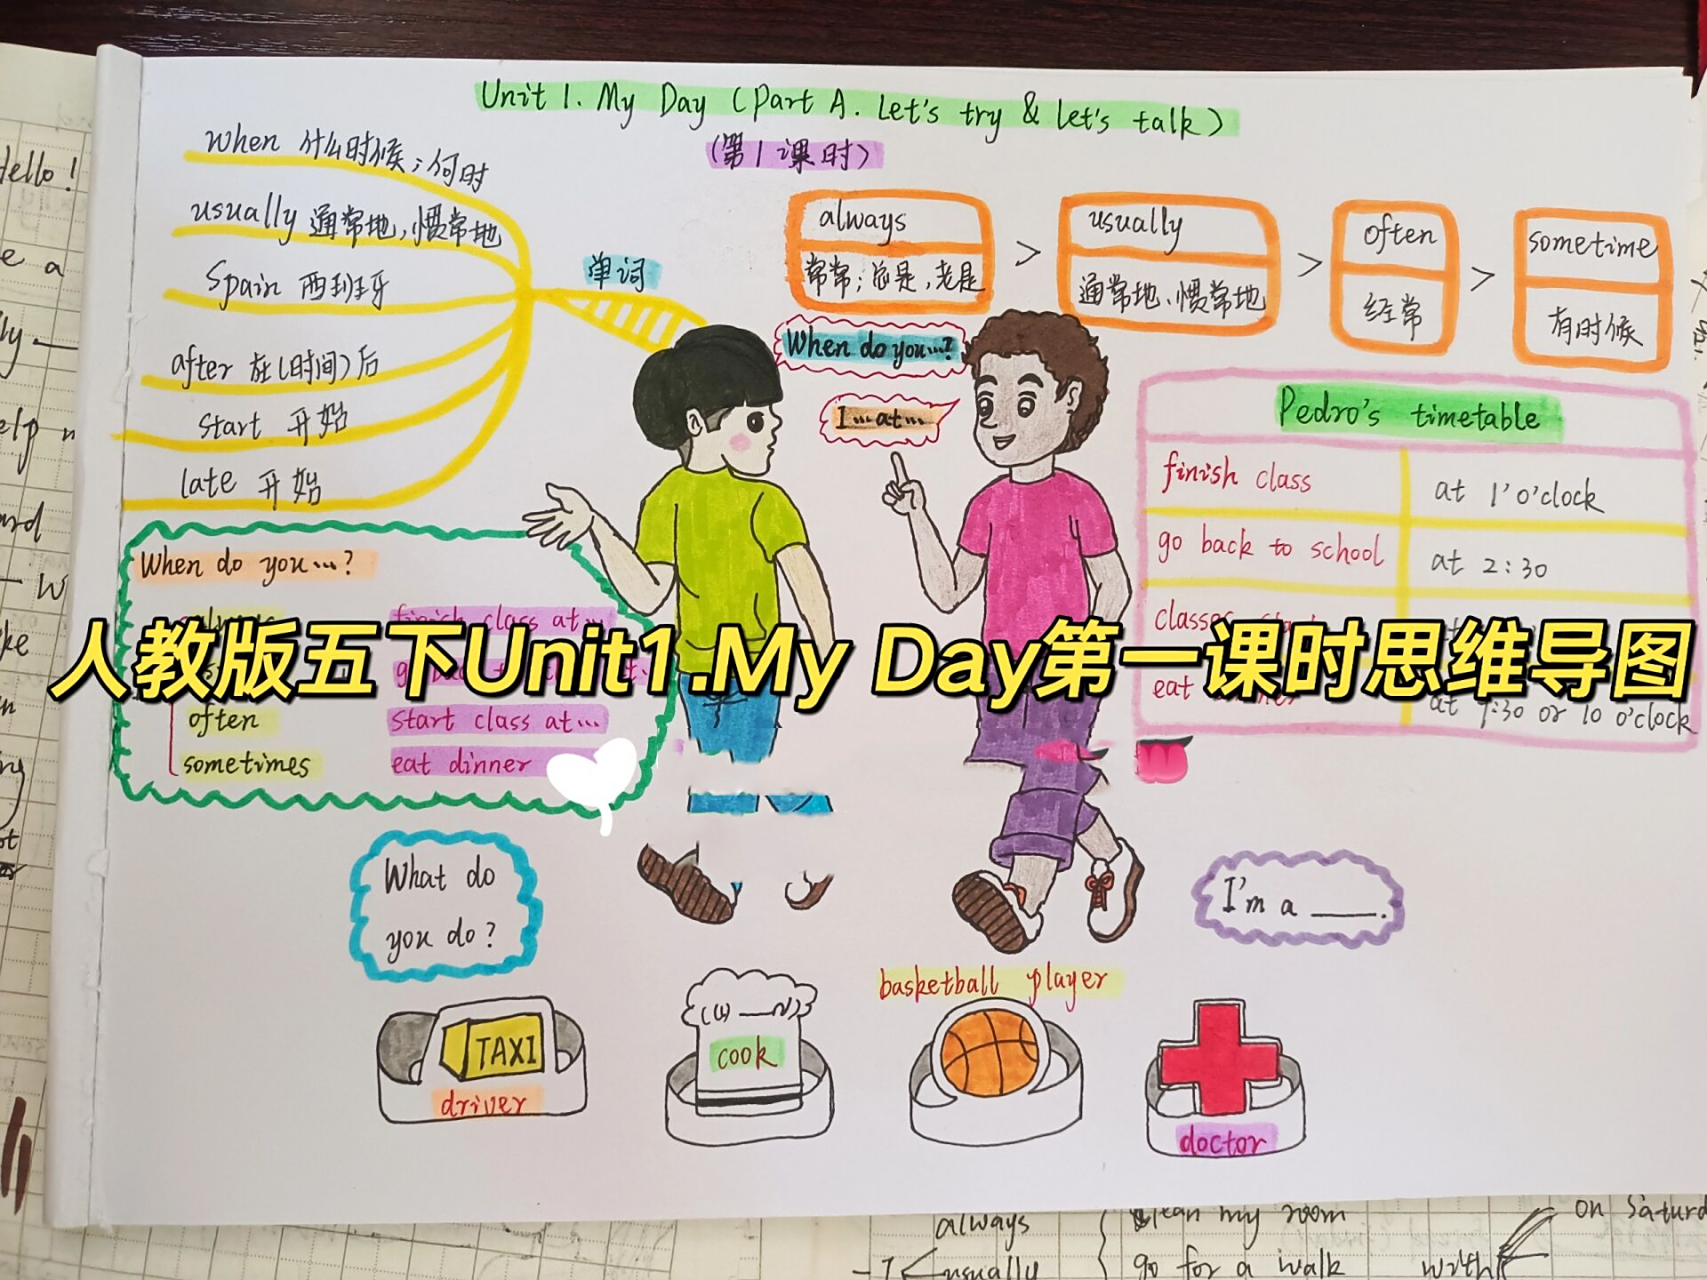 Unit 1. My Day (Part A. Let's try & let's talk)
(第1课时)
when 什么时候;何时
usually 通常地,惯常地
Spain 西班牙
after 在(时间)后
start 开始
late 开始
单词
always
常常;总是,老是
>
usually
通常地、惯常地
>
often
经常
>
sometime
有时候
When do you...?
I...at...
Pedro's timetable
finish class
at 1'o'clock
go back to school
at 2:30
classes
eat
at 9:30 or 10 o'clock
When do you...?
finish class at...
often
start class at...
sometimes
eat dinner
人教版五下Unit1.My Day第一课时思维导图
What do
you do?
I'm a ____.
TAXI
driver
cook
basketball player
doctor
Hello!
e a
always
usually
clean my room
go for a walk
with
on Saturd